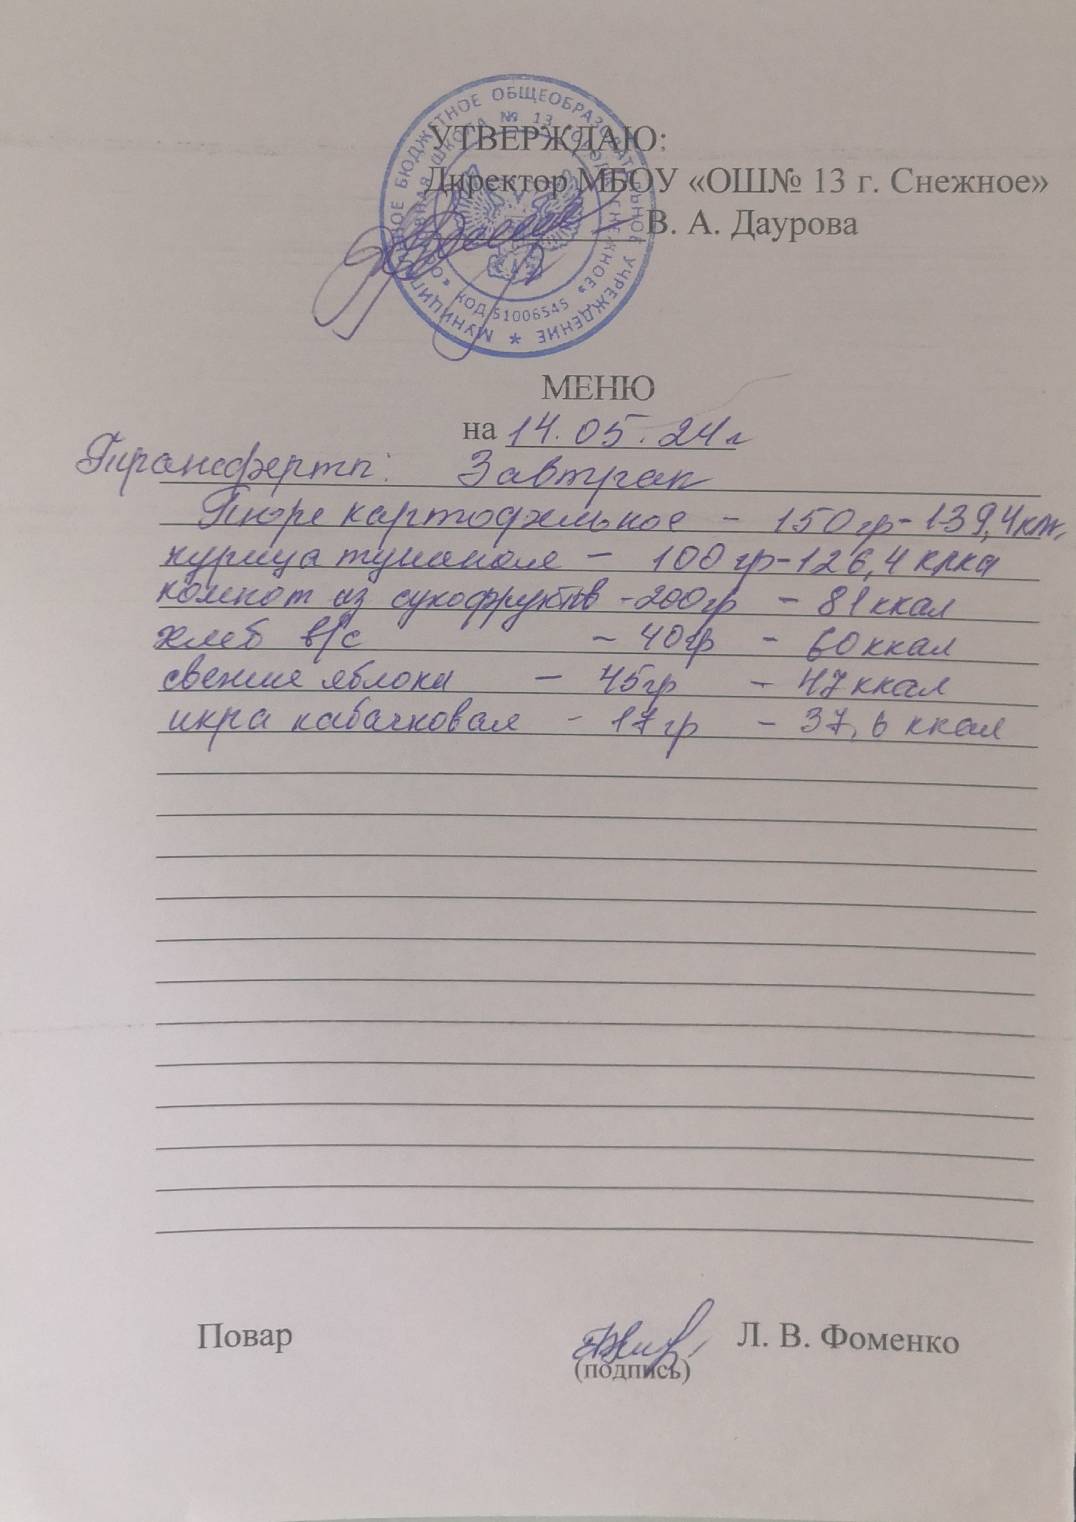 УТВЕРЖДАЮ:
Директор МБОУ «ОШ№ 13 г. Снежное»
В. А. Даурова
МУНИЦИПАЛЬНОЕ БЮДЖЕТНОЕ ОБЩЕОБРАЗОВАТЕЛЬНОЕ УЧРЕЖДЕНИЕ *
ШКОЛА № 13 ГОРОДА СНЕЖНОЕ» КОД 51006545
МЕНЮ
на 14.05.24г
Трансферты: Завтрак
Пюре картофельное - 150гр - 139,4кк
курица тушеная - 100гр - 126,4 ккка
компот из сухофруктов - 200гр - 81ккал
хлеб в/с - 40гр - 60ккал
свежие яблоки - 45гр - 47ккал
икра кабачковая - 17гр - 37,6 ккал
Повар Л. В. Фоменко
(подпись)